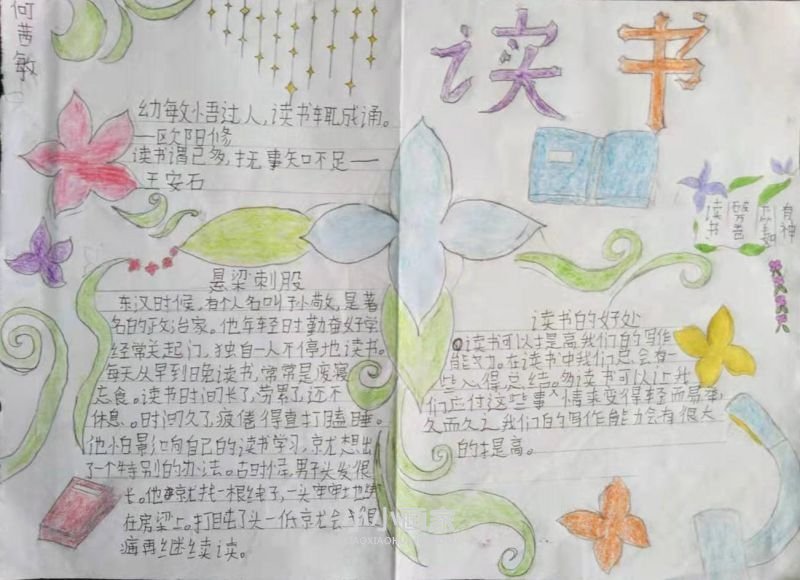 何茜敏
幼敏悟过人，读书辄成诵。
—欧阳修
读书谓已多，抚事知不足——
王安石
悬梁刺股
东汉时候，有个人名叫孙敬，是著
名的政治家。他年轻时勤奋好学
经常关起门，独自一人不停地读书。
每天从早到晚读书，常常是废寝
忘食。读书时间长了，劳累了，还不
休息。时间久了，疲倦得直打瞌睡。
他怕影响自己的读书学习，就想出
了一个特别的办法。古时候，男子头发很
长。他就找一根绳子，一头牢牢地绑
在房梁上。打盹了头一低就会
痛再继续读。
读书
读书
破万卷
下笔如
有神
读书的好处
读书可以提高我们的写作
能力。在读书中我们总会有一
些心得总结。多读书可以让我
们应付这些事情来变得轻而易举，
久而久之我们的写作能力会有很大
的提高。
小画家